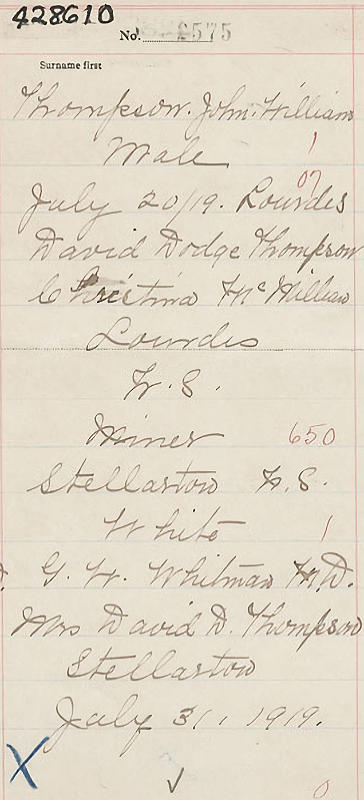 428610
No. 2575
Surname first
Thompson. John. William
Male 1
07
July 20/19. Lourdes
David Dodge Thompson
Christina McMillan
Lourdes
N.S.
Miner 650
Stellarton N.S.
White 1
G. W. Whitman M.D.
Mrs David D. Thompson
Stellarton
July 31. 1919.
X
✓ 0